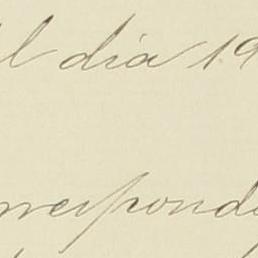 l dia 19
rrespond